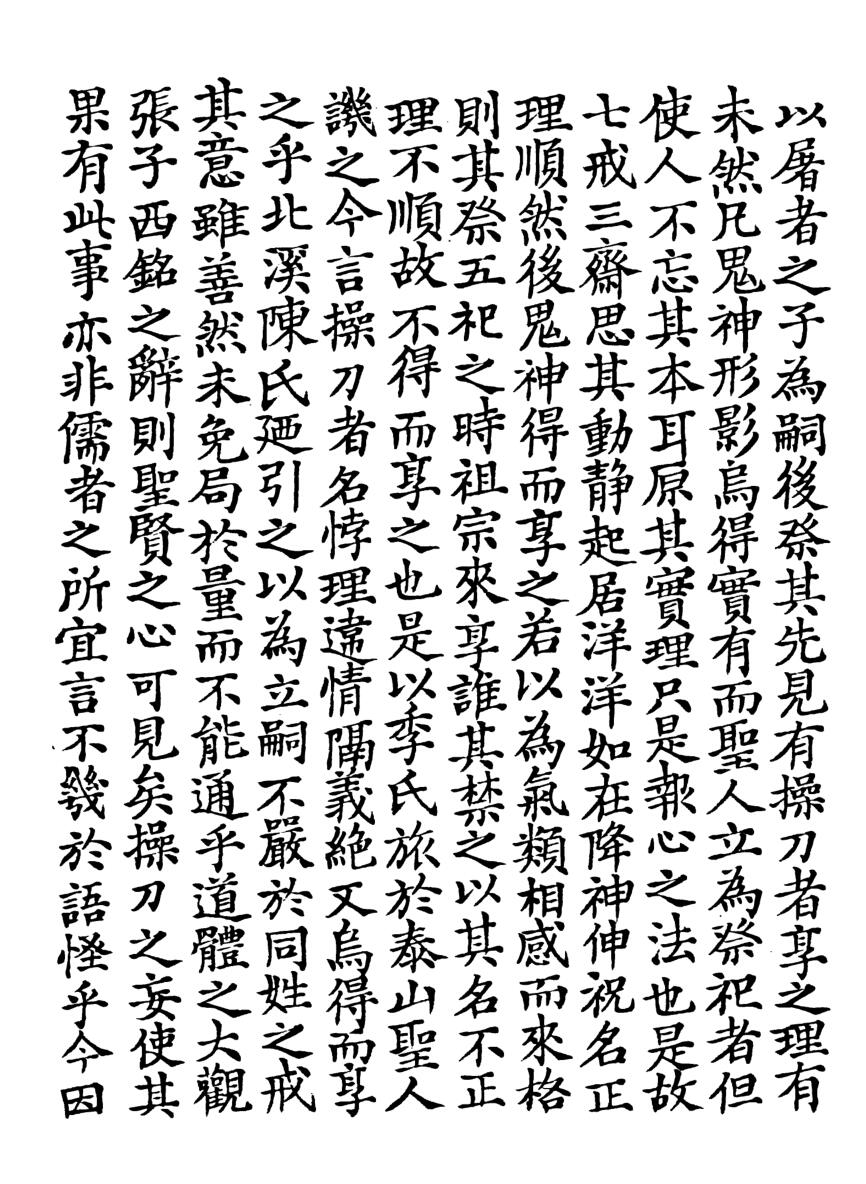 以屠者之子為嗣後祭其先見有操刀者享之理有
未然凡鬼神形影烏得實有而聖人立為祭祀者但
使人不忘其本耳原其實理只是報心之法也是故
七戒三齋思其動靜起居洋洋如在降神伸祝名正
理順然後鬼神得而享之若以為氣類相感而來格
則其祭五祀之時祖宗來享誰其禁之以其名不正
理不順故不得而享之也是以季氏旅於泰山聖人
譏之今言操刀者名悖理違情隔義絕又烏得而享
之乎北溪陳氏廼引之以為立嗣不嚴於同姓之戒
其意雖善然未免局於量而不能通乎道體之大觀
張子西銘之辭則聖賢之心可見矣操刀之妄使其
果有此事亦非儒者之所宜言不幾於語怪乎今因